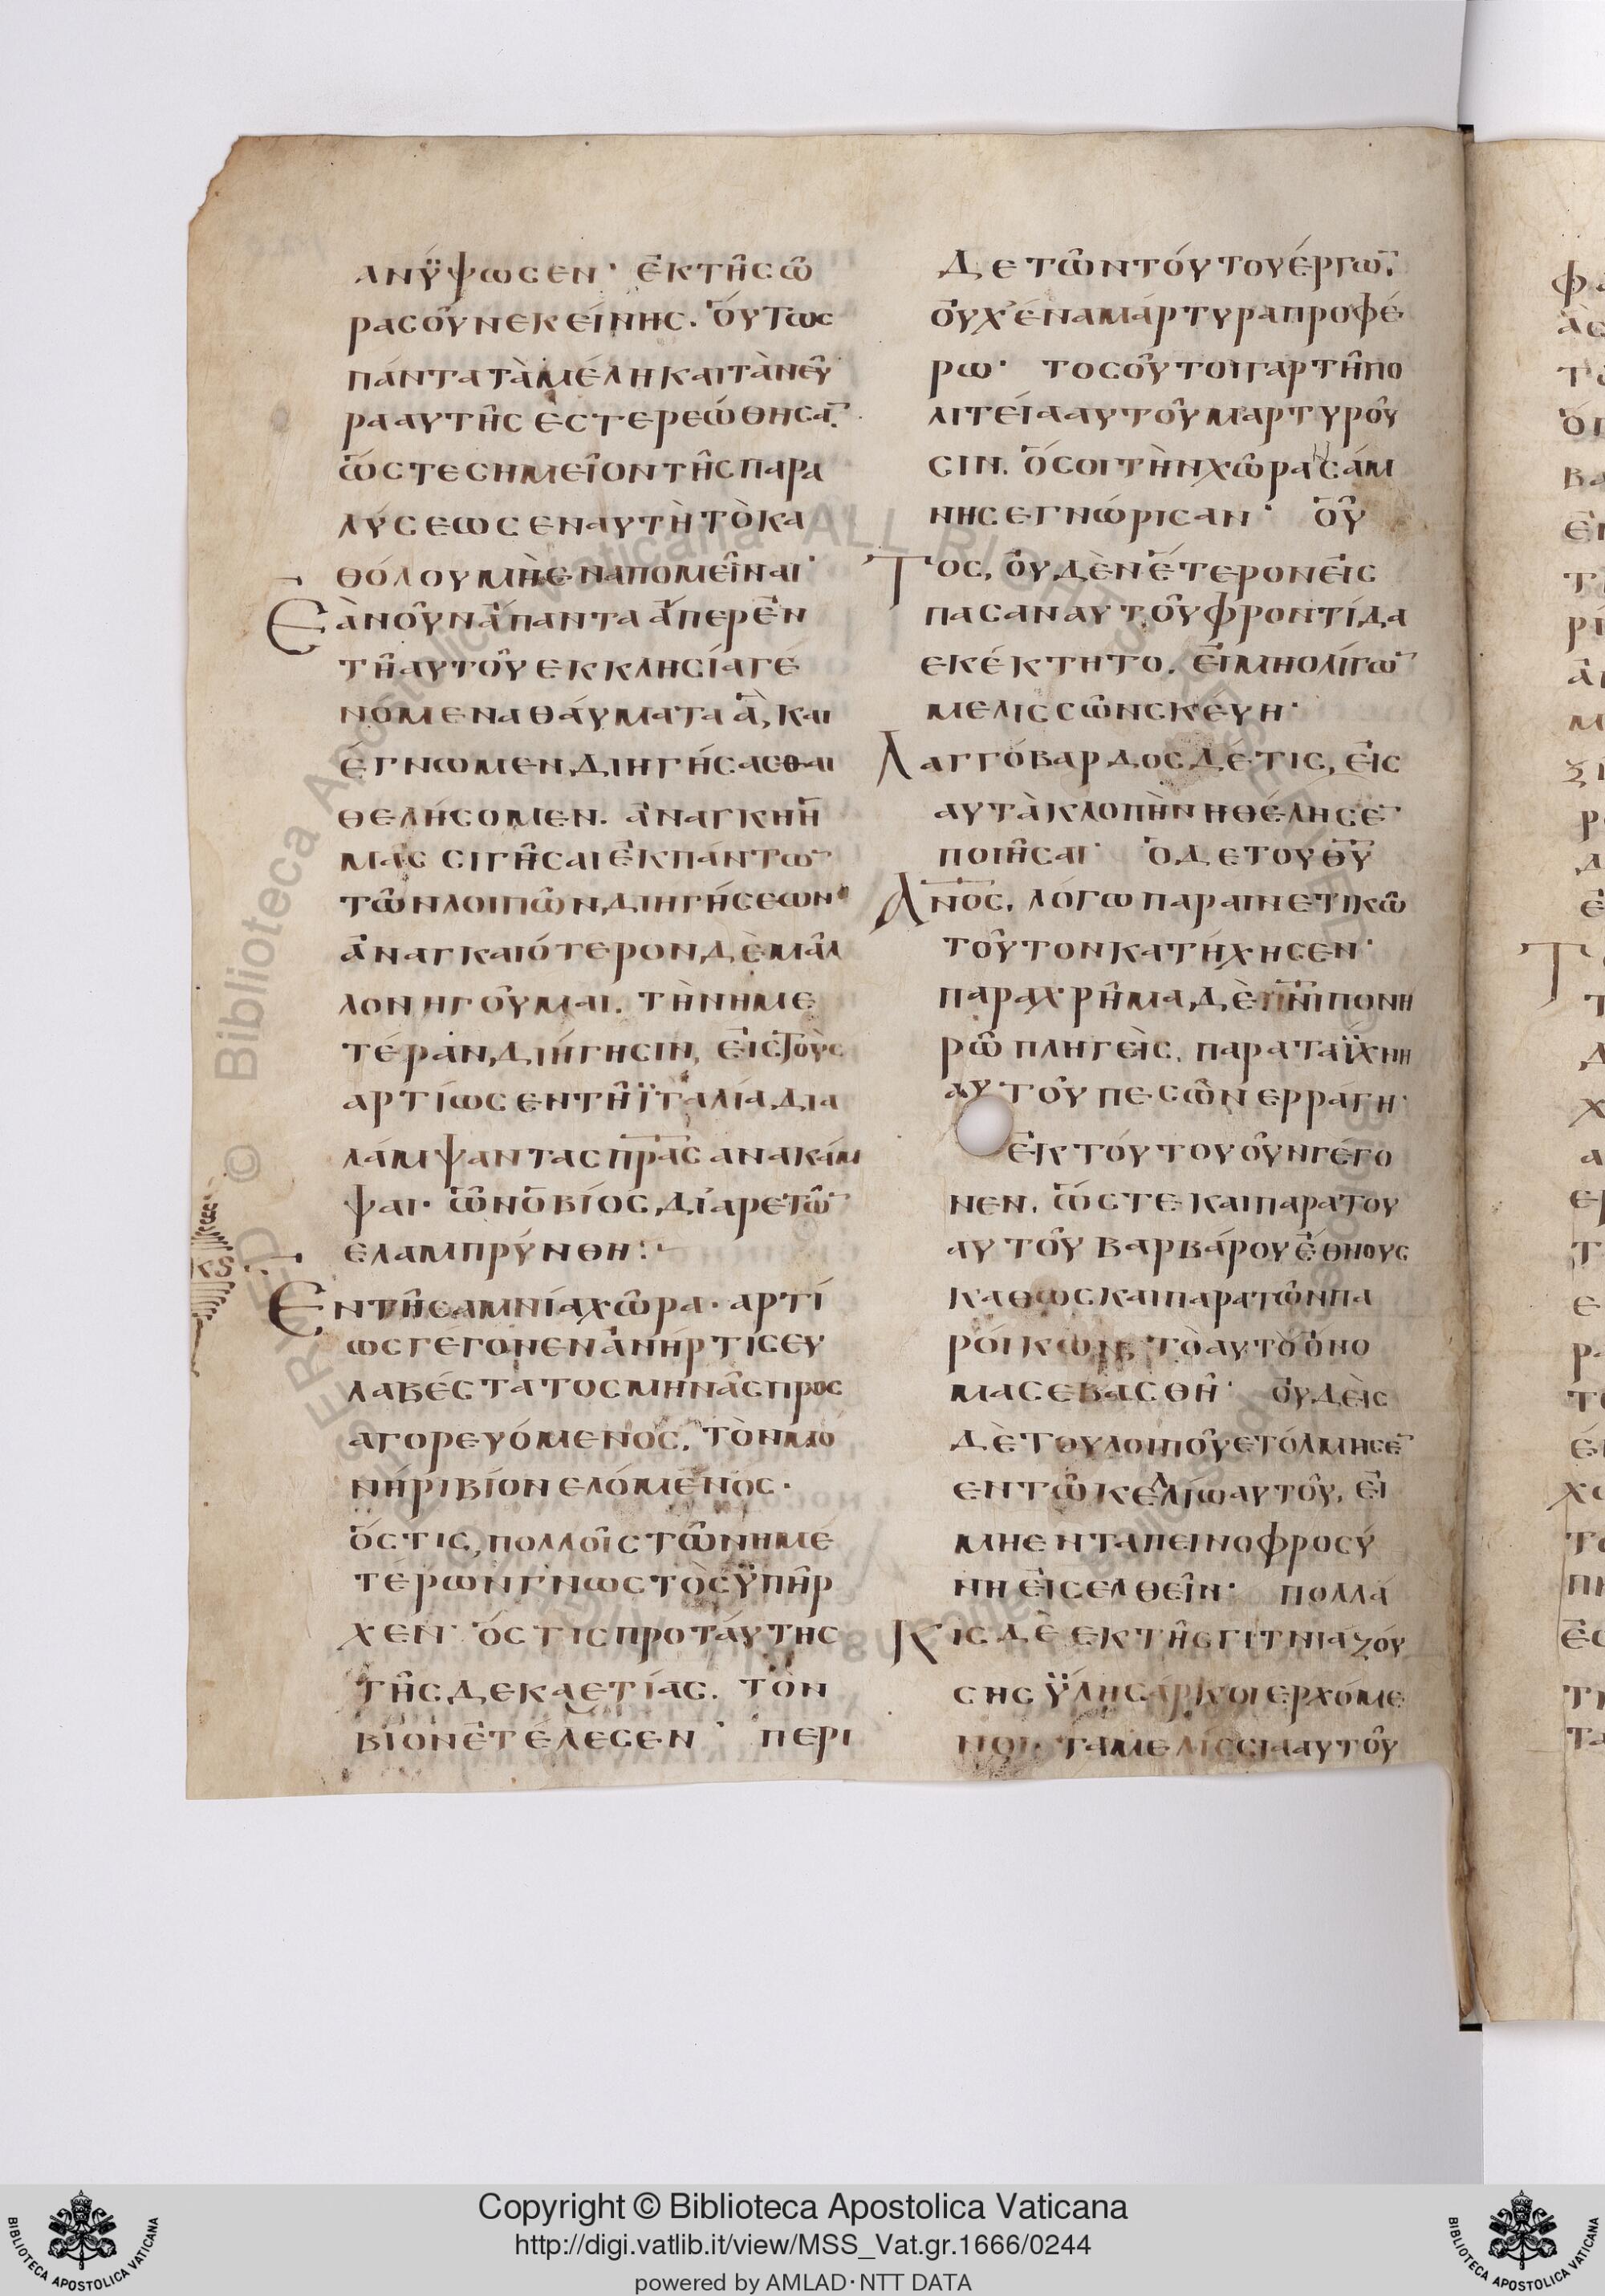 ἀνΰψωσεν· ἐκ τῆς ὥ
ρας οὖν ἐκείνης. ὅυτως
πάντα τὰ μέλη και τὰ νεῦ
ρα αυτῆς ἐστερεώθησα̅.
ὥστε σημεῖον τῆς παρα
λύσεως ἐν αυτὴ τὸ κα
θόλου μὴ ἐναπομεῖναι·
Ἐὰν οὖν ἅπαντα ἅπερ ἐν
τῆ αυτοῦ εκκλησία γέ
νομενα θάυματα ἃ, και
έγνωμεν, διηγήσασθαι
θελήσομεν. ἀνάγκη ἡ
μάς σιγῆσαι ἐκ πάντω̅
τῶν λοιπῶν διηγήσεων·
ἀναγκαιότερον δὲ μᾶλ
λον ηγοῦμαι. τὴν ημε
τέραν διήγησιν, εἰς τοὺς
αρτίως εν τῆ ϊταλία δια
λάμψαντας π̅ρ̅α̅ς ανακάμ
ψαι· ὧν ὁ βίος, δι' αρετῶ̅
ελαμπρύνθη:-
κς
Εν τῆ σαμνία χῶρα· αρτί
ως γέγονεν ἀνήρ τις ευ
λαβέστατος μηνᾶς προς
αγορευόμενος. τὸν μαο
νήρι βίον ελόμενος·
ὅστις, πολλοῖς τῶν ημε
τέρων γνωστὸς ϋπῆρ
χεν· ὅστις προ τάυτης
τῆς δεκαετίας. τὸν
βίον ἐτέλεσεν· περι
δε τῶν τόυτου έργω̅.
ὀυχ' ένα μάρτυρα προφέ
ρω· τοσοῦτοι γαρ τῆ πο
λιτεία αυτοῦ μαρτυροῦ
σιν. ὅσοι τὴν χῶρα ν σάμ
νης εγνώρισαν· οὗ
Τος, ὀυδὲν ἕτερον εἰς
πασαν αυτοῦ φροντίδα
εκέκτητο. εἰ μη ολίγω̅
μελισσῶν σκέυη·
Λαγγόβαρδος δέ τις, εἰς
αυτὰ κλοπὴν ηθέλησε̅
ποιῆσαι· ὁ δε του θ̅υ̅
Α̅ν̅ο̅ς̅. λόγω παραινετικῶ
τοῦτον κατήχησεν·
παραχρῆμα δὲ π̅ν̅ι̅ πονη
ρῶ πληγεὶς. παρα τα ΐχνη
αυτοῦ πεσὼν ερράγη·
ἐκ τόυτου οὖν γέγο
νεν. ὥστε και παρα του
αυτοῦ βαρβάρου ἔθνους
καθως και παρα τῶν πα
ρόικων τὸ αυτο ὄνο
μα σεβασθῆ· ὀυδεὶς
δὲ του λοιποῦ ετόλμησε̅
εν τῶ κελλίω αυτοῦ, εἰ
μη εν ταπεινοφροσύ
νη εἰσελθεῖν· πολλά
Κις δὲ εκ τῆς γιτνιαζού
σης ϋλης άρκοι ερχόμε
νοι τα μελίσσια αυτοῦ
Copyright © Biblioteca Apostolica Vaticana
http://digi.vatlib.it/view/MSS_Vat.gr.1666/0244
powered by AMLAD·NTT DATA
BIBLIOTECA APOSTOLICA VATICANA
BIBLIOTECA APOSTOLICA VATICANA